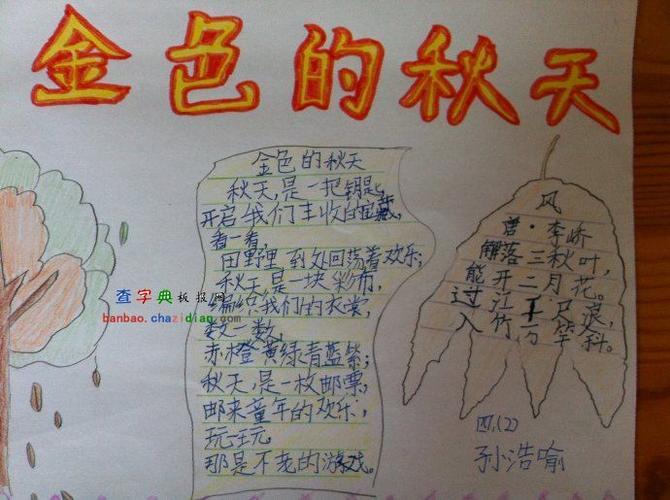 金色的秋天
金色的秋天
秋天,是一把钥匙,
开启我们丰收的宝藏,
看一看,
田野里 到处回荡着欢乐;
秋天是一块彩布,
编织我们的衣裳,
数一数,
赤橙黄绿青蓝紫;
秋天,是一枚邮票,
邮来童年的欢乐,
玩一玩,
那是不老的游戏。
风
李峤
解落三秋叶,
能开二月花。
过江千尺退,
入竹万竿科。
四.(2)
孙浩喻
查字典板报网
banbao.chazidian.com